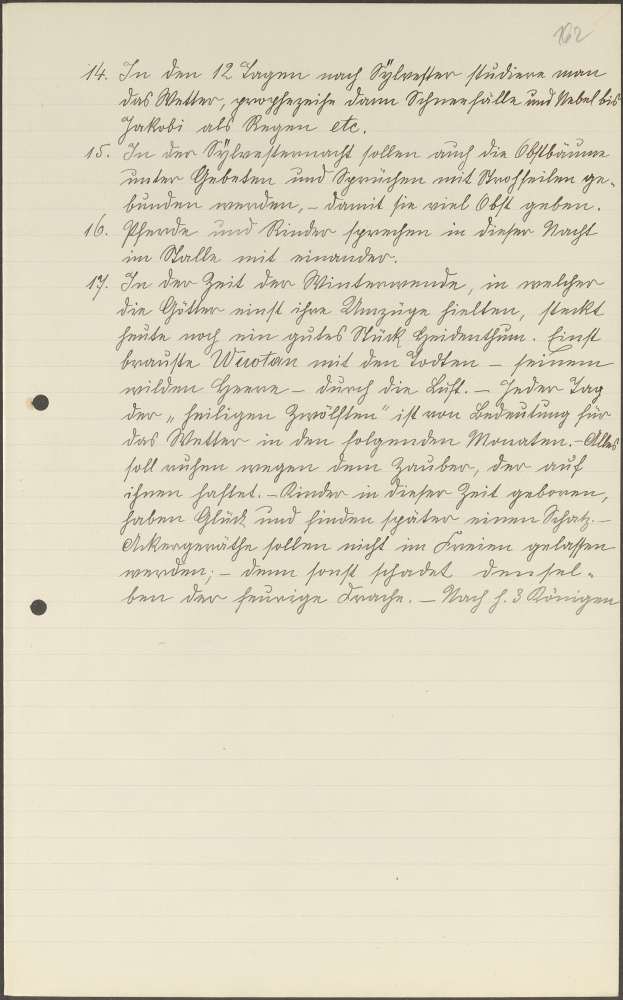 162
14. In den 12 Tagen nach Sylvester studiere man
das Wetter, prophezeihe dann Schneefälle und Nebel bis
Jakobi als Regen etc.
15. In der Sylvesternacht sollen auch die Obstbäume
unter Gebeten und Sprüchen mit Strohseilen ge-
bunden werden, – damit sie viel Obst geben.
16. Pferde und Rinder sprechen in dieser Nacht
im Stalle mit einander.
17. In der Zeit der Winterwende, in welcher
die Götter einst ihre Umzüge hielten, steckt
heute noch ein gutes Stück Heidenthum. Einst
brauste Wuotan mit den Todten – seinem
wilden Heere – durch die Luft. – Jeder Tag
der „heiligen Zwölften" ist von Bedeutung für
das Wetter in den folgenden Monaten. – Alles
soll ruhen wegen dem Zauber, der auf
ihnen haftet. – Kinder in dieser Zeit geboren,
haben Glück und finden später einen Schatz. –
Ackergeräthe sollen nicht im Freien gelassen
werden; – denn sonst schadet densel-
ben der feurige Drache. – Nach h. 3 Königen